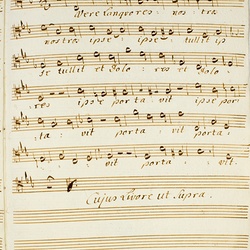 Vere languores nos tra
nostra ipse ipse tullit ip
se tullit et Dolo res et Dolo
res ipse porta vit ipse por
ta vit porta vit porta
vit porta vit.
Cujus livore ut Supra.